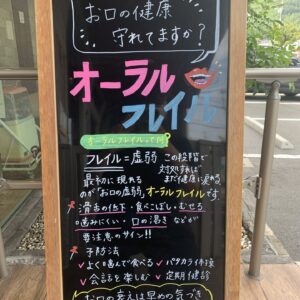 お口の健康
守れてますか?
オーラル
フレイル
オーラルフレイルって何?
フレイル=虚弱
この段階で
対処すれば
まだ健康に戻れる
最初に現れる
のが「お口の虚弱」オーラルフレイルです
滑舌の低下・食べこぼし・むせる
噛みにくい・口の渇きなどが
要注意のサイン!!
予防法
✓よく噛んで食べる ✓パタカラ体操
✓会話を楽しむ ✓定期健診
お口の衰えは早めの気づき